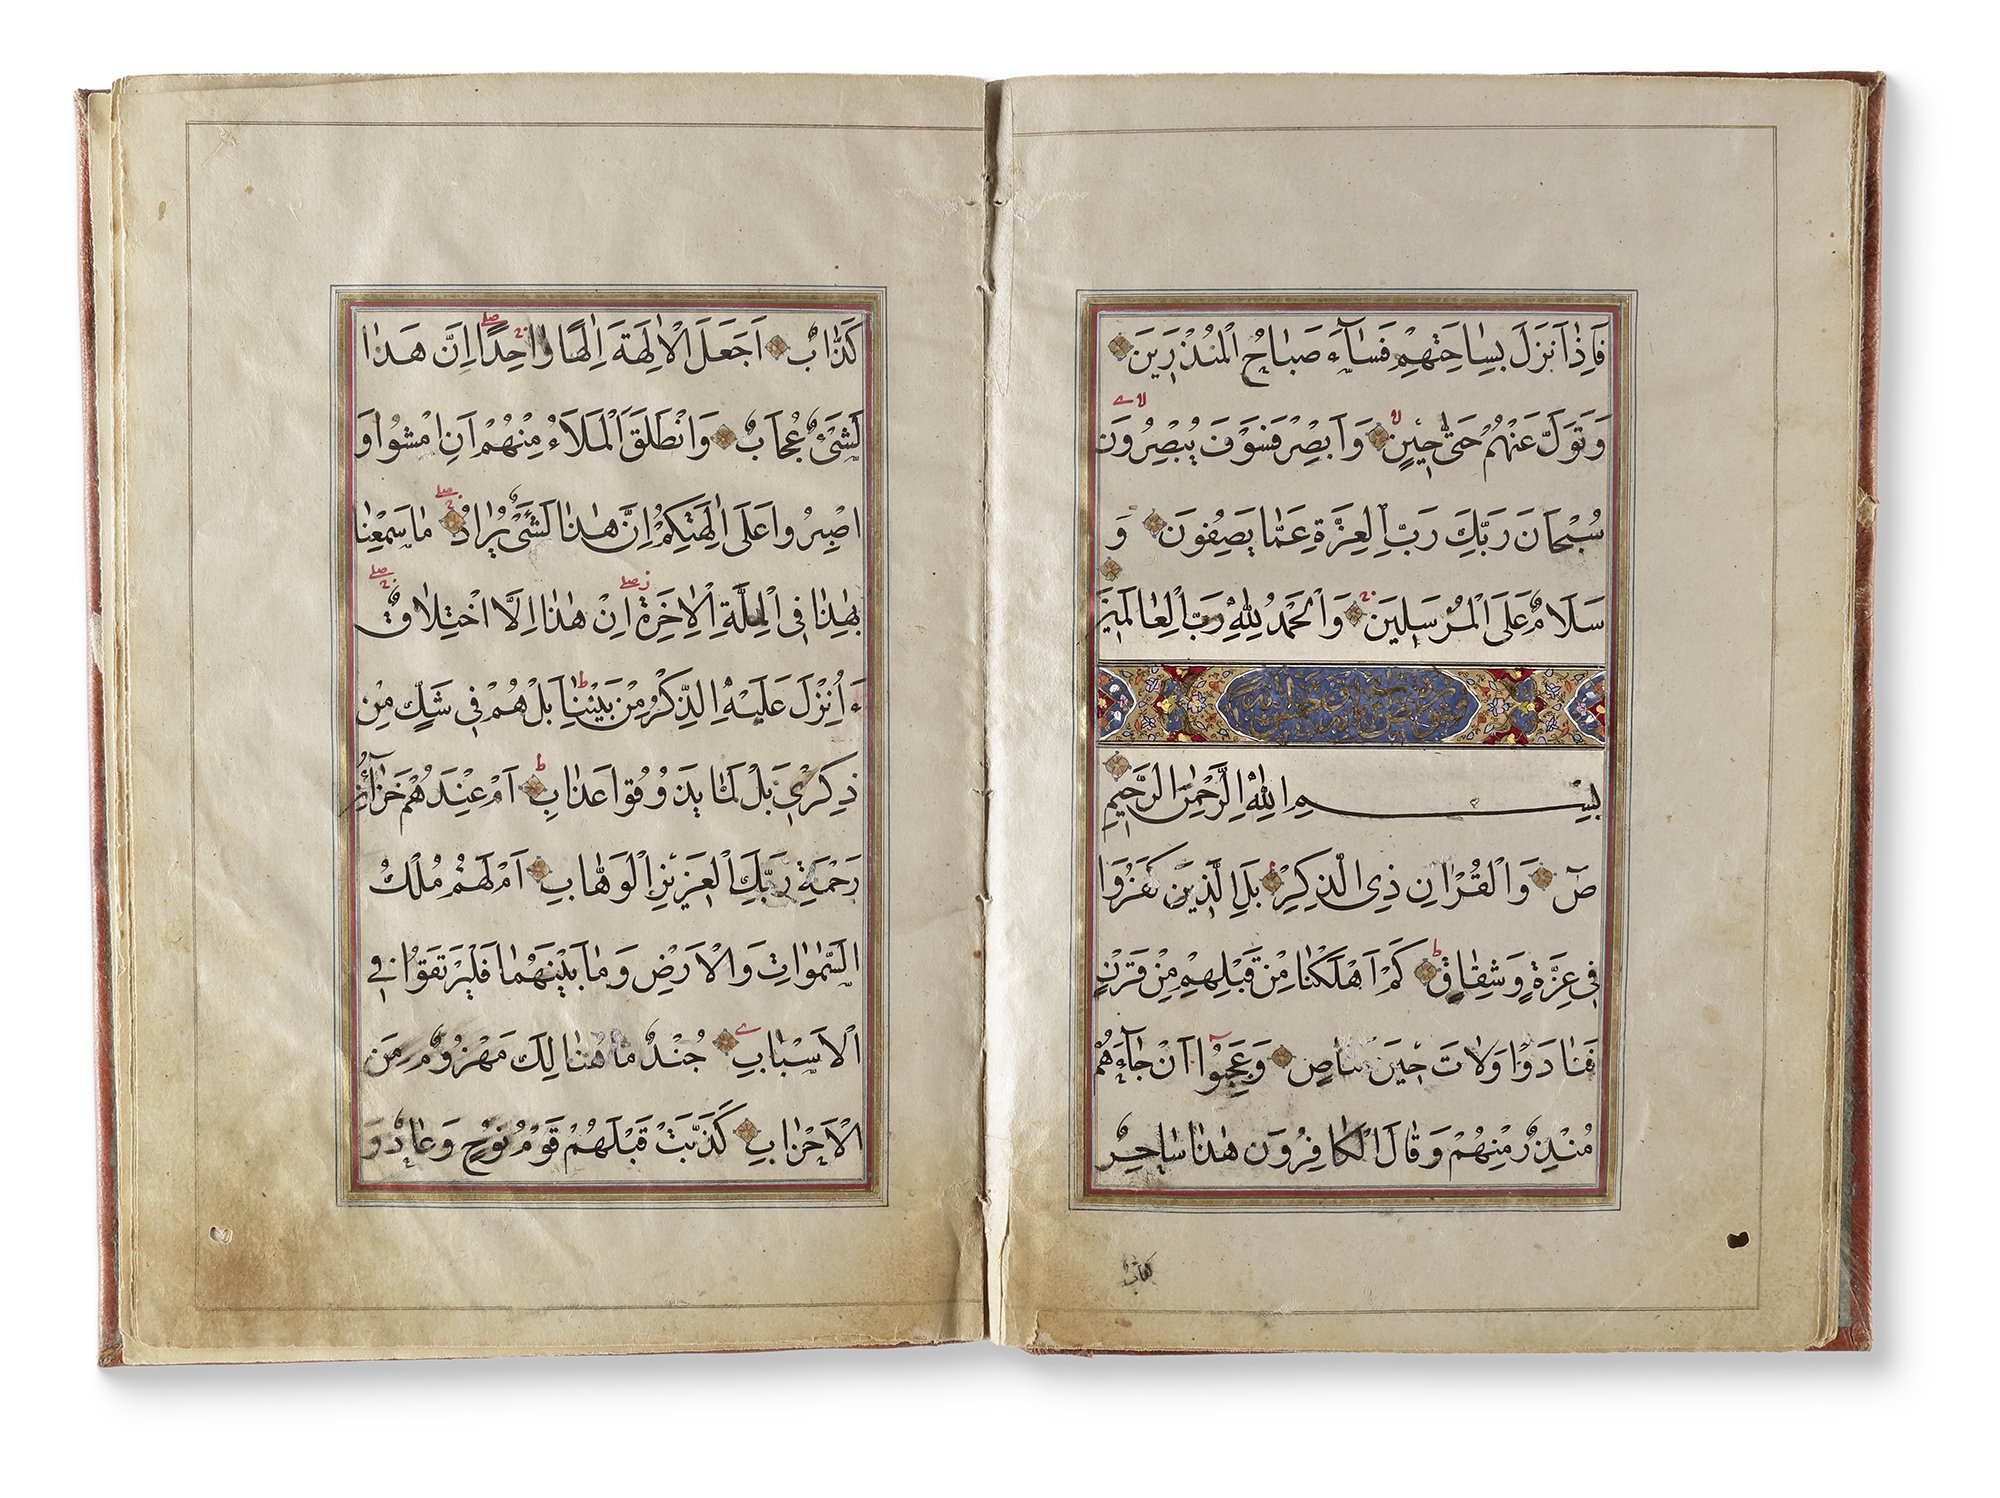 فَاِذٰا نَزَلَ بِسٰاحَتِهِمْ فَسٰٓاءَ صَبٰاحُ الْمُنْذَرٖينَ
وَتَوَلَّ عَنْهُمْ حَتّٰى حٖينٍ وَاَبْصِرْ فَسَوْفَ يُبْصِرُونَ
سُبْحٰانَ رَبِّكَ رَبِّ الْعِزَّةِ عَمّٰا يَصِفُونَ وَ
سَلَامٌ عَلَى الْمُرْسَلٖينَ وَالْحَمْدُ لِلّٰهِ رَبِّ الْعٰالَمٖينَ
بِسْمِ اللّٰهِ الرَّحْمٰنِ الرَّحٖيمِ
صٓ وَالْقُرْاٰنِ ذِى الذِّكْرِ بَلِ الَّذٖينَ كَفَرُوا
فٖى عِزَّةٍ وَشِقٰاقٍ كَمْ اَهْلَكْنٰا مِنْ قَبْلِهِمْ مِنْ قَرْنٍ
فَنٰادَوْا وَلَاتَ حٖينَ مَنٰاصٍ وَعَجِبُوا اَنْ جٰٓاءَهُمْ
مُنْذِرٌ مِنْهُمْ وَقٰالَ الْكٰافِرُونَ هٰذٰا سٰاحِرٌ
كَذّٰابٌ اَجَعَلَ الْاٰلِهَةَ اِلٰهًا وٰاحِدًا اِنَّ هَذٰا
لَشَىْءٌ عُجٰابٌ وَانْطَلَقَ الْمَلَاُ مِنْهُمْ اَنِ امْشُوا وَ
اصْبِرُوا عَلٰى اٰلِهَتِكُمْ اِنَّ هٰذٰا لَشَىْءٌ يُرٰادُ مٰا سَمِعْنٰا
بِهٰذٰا فِى الْمِلَّةِ الْاٰخِرَةِ اِنْ هٰذٰا اِلَّا اخْتِلٰاقٌ
ءَاُنْزِلَ عَلَيْهِ الذِّكْرُ مِنْ بَيْنِنٰا بَلْ هُمْ فٖى شَكٍّ مِنْ
ذِكْرٖى بَلْ لَمّٰا يَذُوقُوا عَذٰابِ اَمْ عِنْدَهُمْ خَزٰٓائِنُ
رَحْمَةِ رَبِّكَ الْعَزٖيزِ الْوَهّٰابِ اَمْ لَهُمْ مُلْكُ
السَّمٰوٰاتِ وَالْاَرْضِ وَمٰا بَيْنَهُمٰا فَلْيَرْتَقُوا فِى
الْاَسْبٰابِ جُنْدٌ مٰا هُنٰالِكَ مَهْزُومٌ مِنَ
الْاَحْزٰابِ كَذَّبَتْ قَبْلَهُمْ قَوْمُ نُوحٍ وَعٰادٌ وَ